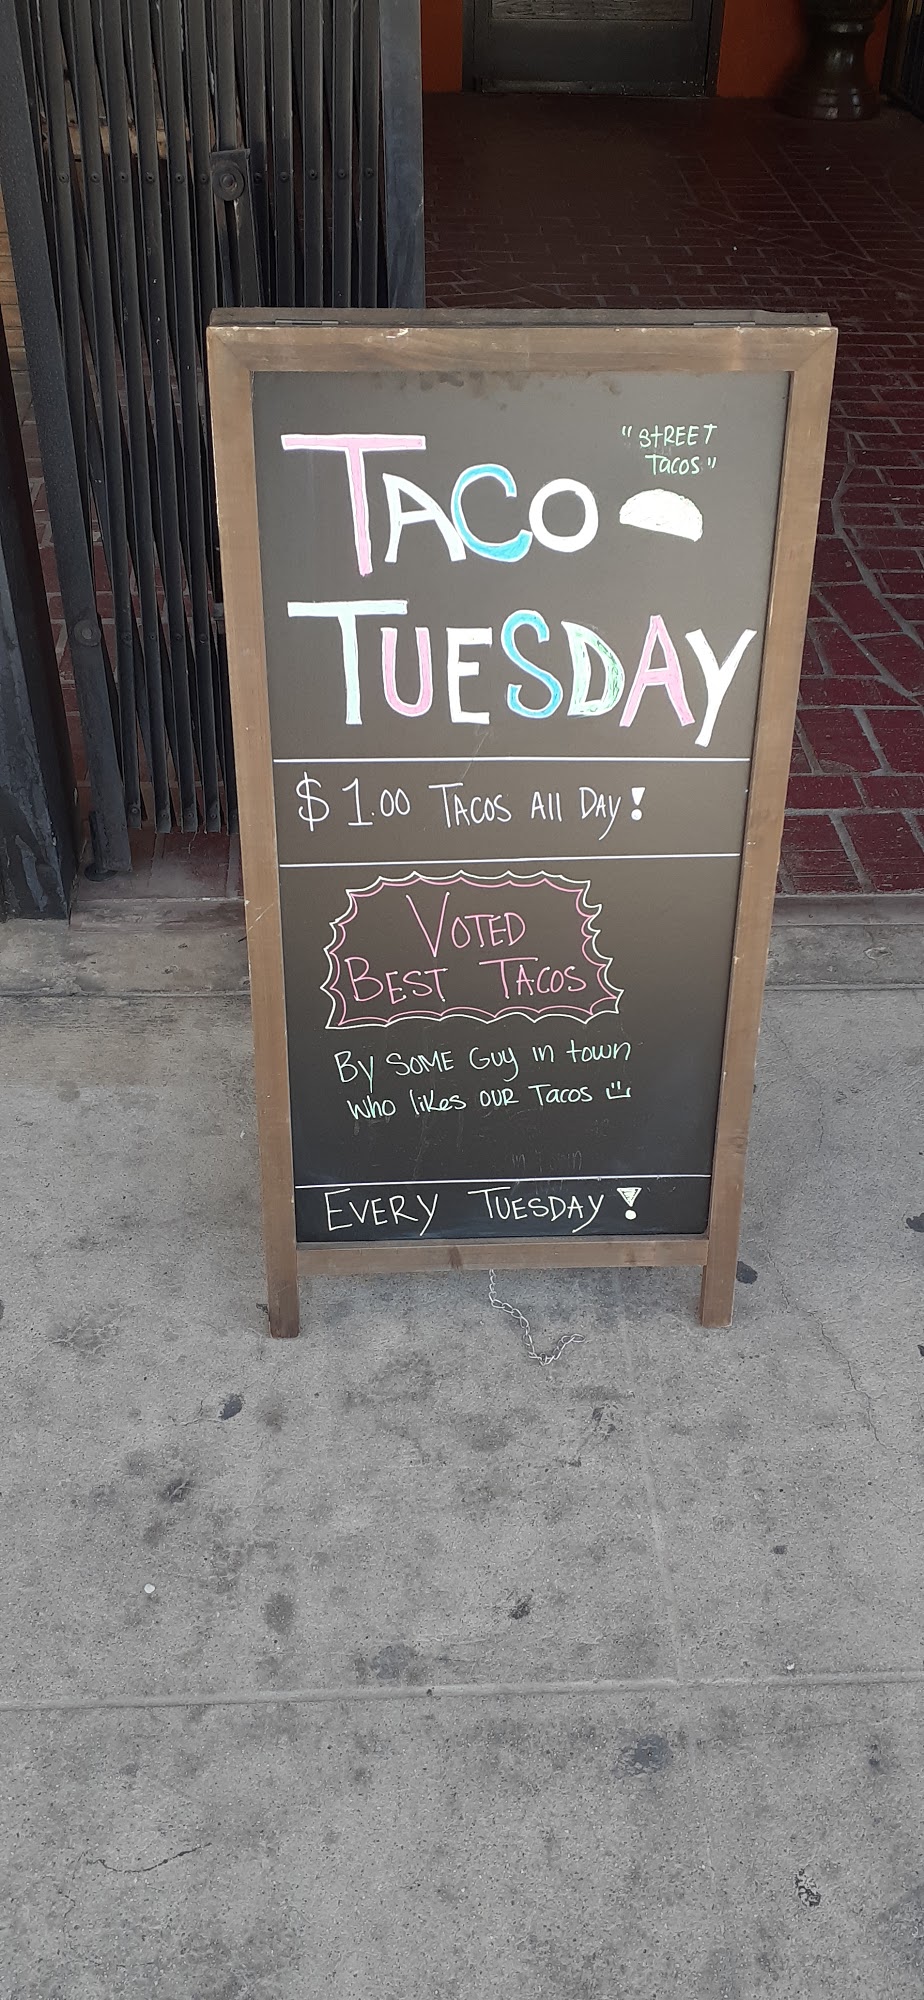 TACO
"STREET
Tacos"
TUESDAY
$1.00 TACOS All DAY!
VOTED
BEST TACOS
By SOME Guy in town
who likes OUR Tacos
EVERY TUESDAY!